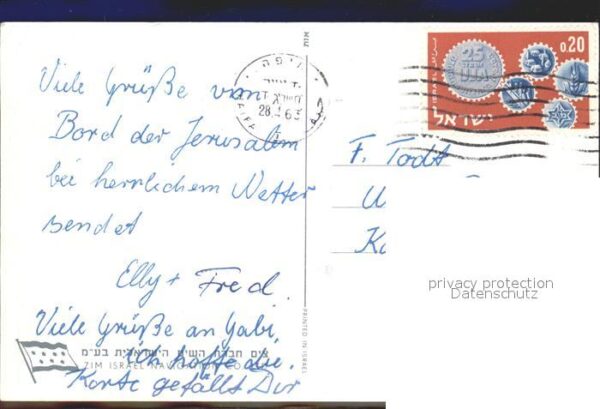 Viele Grüße vom
Bord der Jerusalem
bei herrlichem Wetter
sendet
Elly + Fred.
Viele Grüße an Gabi,
ich hoffe die
Karte gefällt Dir
צים חברת השיט הישראלית בע״מ
ZIM ISRAEL NAVIGATION CO
PRINTED IN ISRAEL
חיפה
HAIFA
63
25
UJA
0.20
ישראל
F. Todt
U
K
privacy protection
Datenschutz